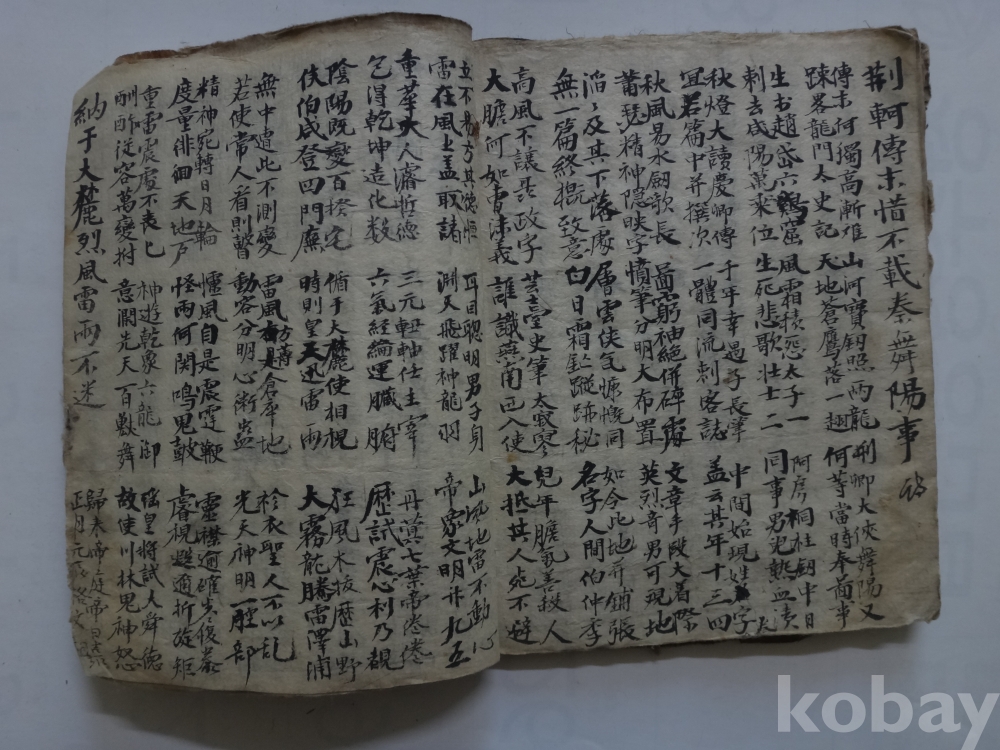 荊軻傳末惜不載秦舞陽事
傳末何獨高漸難 山河寶釰照兩龍 荊卿大俠舞陽又
踈畧龍門太史記 天地蒼鷹落一翅 何等當時奉啚事
生台趙岱六鷄窟 風霜積怨太子一 阿房桐杜釰中日
刺去咸陽萬乘位 生死悲歌壮士二 同事男児熱血漬
秋燈大讀慶卿傳 千年幸遇子長筆 中間始現姓字
宜若篇中并撰次 一體同流刺客誌 盖云其年十三四
秋風易水劒歌長 啚窮袖絕併碑處 文章手段大着際
精神隱映字 憤筆分明大布置 英烈奇男可現地
滔〻及其下落處 層雲俠气慷慨同 如今此地并鋪張
無一篇終掍致意 白日霜釰蹤跡秘 名字人間伯仲季
高風不讓聶政字 芸臺史筆太寂寥 兒年膽氣善殺人
大膽何如曺沫義 誰識燕南已入使 大抵其人宛不避
立不易方其德恒 耳目聡明男子身 山風地雷不動心
雷在風上盖取諸 淵天飛躍神龍羽 帝象文明卦九五
重華大人濬哲德 三元軸仕主宰 丹蓂七葉帝倦倦
乞得乾坤造化数 六氣經綸運臓腑 歷試震心利乃覩
陰陽既變百揆宅 循于大麓使相視 狂風木拔歷山野
伏伯咸登四門廡 時則皇天迅雷雨 大霧龍騰雷澤浦
無中遭此不測變 雷風倉卒地 袗衣聖人不以乱
若使常人看則瞽 動容分明心術盖 光天神明一腔部
精神宛轉日月輪 懼風自是震霆鞭 靈襟適確
度量徘徊天地戶 怪雨何関鳴鬼鼓 睿視趨適折旋矩
重雷震處不喪匕 神遊乾象六龍御 瑤皇將試人舜德
酬酢従容萬變拊 意闌先天百獸舞 故使川林鬼神怒
納于大麓烈風雷雨不迷
歸来帝庭帝曰
正月元日
kobay